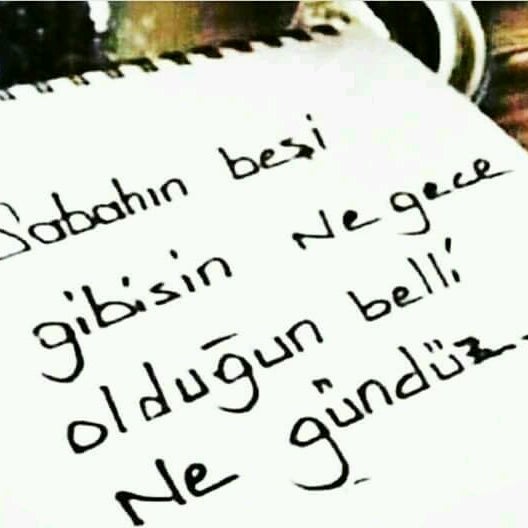 Sabahın beşi
gibisin Ne gece
olduğun belli
Ne gündüz..